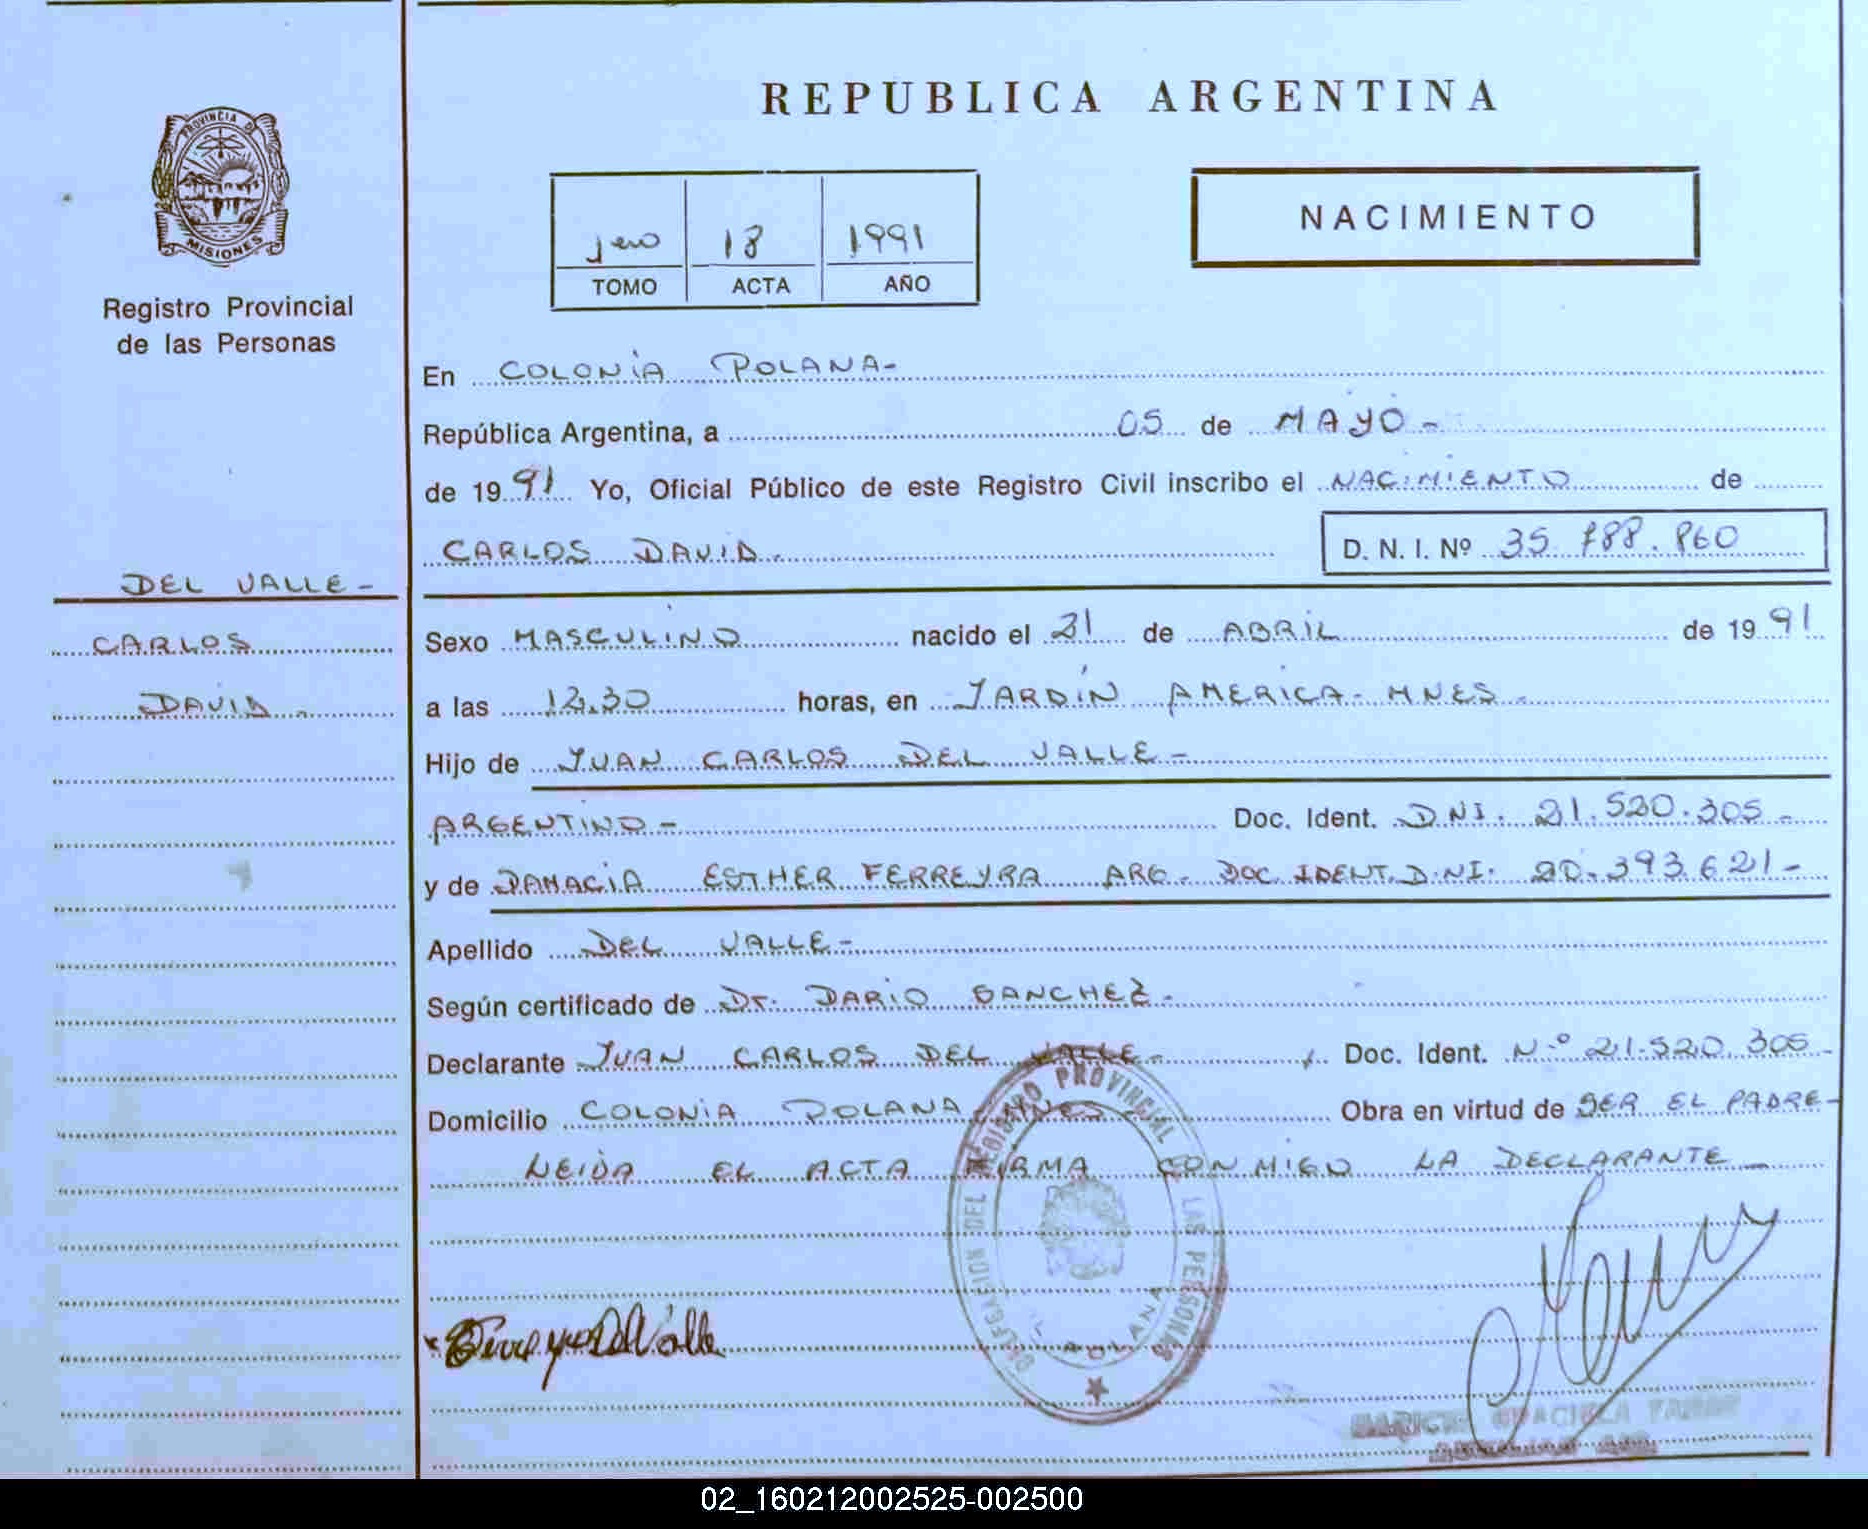 PROVINCIA DE
MISIONES
Registro Provincial
de las Personas
DEL VALLE -
CARLOS
DAVID -
REPUBLICA ARGENTINA
1ero 18 1991
TOMO ACTA AÑO
NACIMIENTO
En COLONIA POLANA-
República Argentina, a 05 de MAYO -
de 19 91 Yo, Oficial Público de este Registro Civil inscribo el NACIMIENTO de
CARLOS DAVID - D. N. I. Nº 35.788.860
Sexo MASCULINO nacido el 21 de ABRIL de 19 91
a las 12.30 horas, en JARDÍN AMERICA- MNES -
Hijo de JUAN CARLOS DEL VALLE -
ARGENTINO - Doc. Ident. DNI. 21.520.305 -
y de DAMACIA ESTHER FERREYRA ARG - DOC IDENT. D.NI. 20.393.621 -
Apellido DEL VALLE -
Según certificado de Dr. DARIO SANCHEZ -
Declarante JUAN CARLOS DEL VALLE - Doc. Ident. N.º 21.520.305 -
Domicilio COLONIA POLANA - MNES - Obra en virtud de SER EL PADRE -
LEIDA EL ACTA FIRMA CONMIGO LA DECLARANTE -
DELEGACION DEL REGISTRO PROVINCIAL LAS PERSONAS
POLANA
02_160212002525-002500